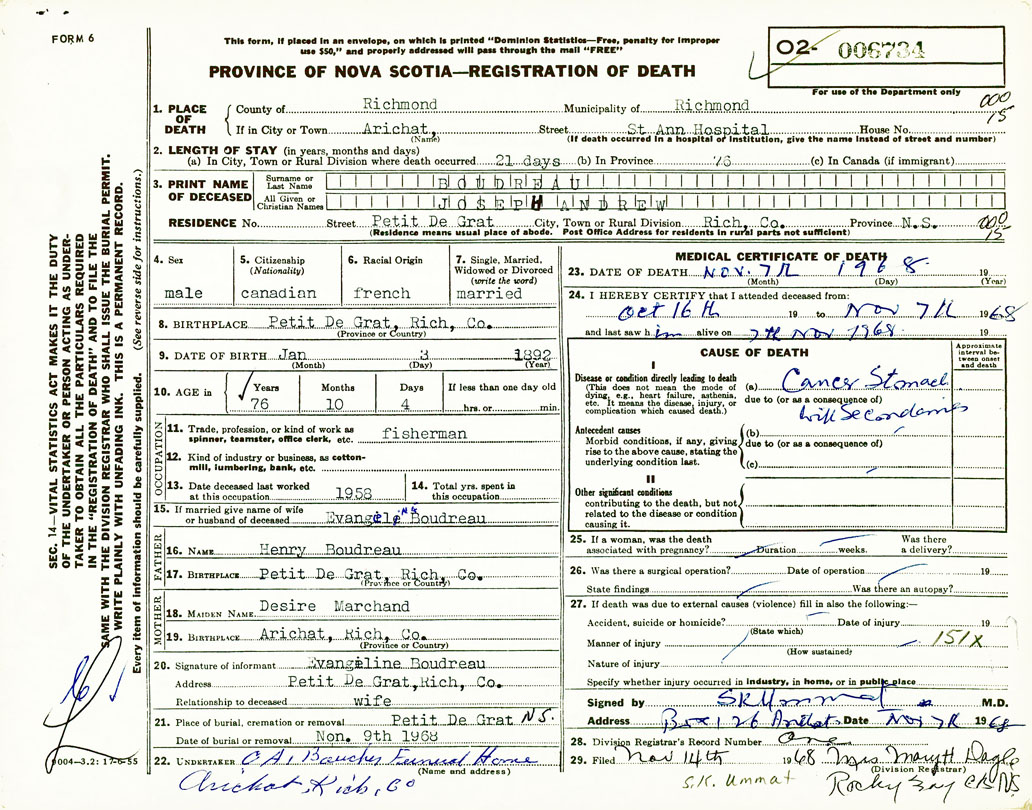 FORM 6
This form, if placed in an envelope, on which is printed "Dominion Statistics—Free, penalty for improper
use $50," and properly addressed will pass through the mail "FREE"
PROVINCE OF NOVA SCOTIA—REGISTRATION OF DEATH
02- 006734
For use of the Department only
000
15
1. PLACE OF DEATH
County of Richmond Municipality of Richmond
If in City or Town Arichat, Street St Ann Hospital House No.
(Name) (If death occurred in a hospital or institution, give the name instead of street and number)
2. LENGTH OF STAY (in years, months and days)
(a) In City, Town or Rural Division where death occurred 21 days (b) In Province 76 (c) In Canada (if immigrant)
3. PRINT NAME OF DECEASED
Surname or Last Name BOUDREAU
All Given or Christian Names JOSEPH ANDREW
RESIDENCE No. Street Petit De Grat City, Town or Rural Division Rich, Co. Province N.S.
(Residence means usual place of abode. Post Office Address for residents in rural parts not sufficient)
000
15
SEC. 14—VITAL STATISTICS ACT MAKES IT THE DUTY
OF THE UNDERTAKER OR PERSON ACTING AS UNDER-
TAKER TO OBTAIN ALL THE PARTICULARS REQUIRED
IN THE "REGISTRATION OF DEATH" AND TO FILE THE
SAME WITH THE DIVISION REGISTRAR WHO SHALL ISSUE THE BURIAL PERMIT.
WRITE PLAINLY WITH UNFADING INK. THIS IS A PERMANENT RECORD.
Every item of information should be carefully supplied. (See reverse side for instructions.)
4. Sex
male
5. Citizenship
(Nationality)
canadian
6. Racial Origin
french
7. Single, Married,
Widowed or Divorced
(write the word)
married
8. BIRTHPLACE Petit De Grat, Rich, Co.
(Province or Country)
9. DATE OF BIRTH Jan 3 1892
(Month) (Day) (Year)
10. AGE in
Years Months Days If less than one day old
76 10 4 hrs. or min.
OCCUPATION
11. Trade, profession, or kind of work as
spinner, teamster, office clerk, etc. fisherman
12. Kind of industry or business, as cotton-
mill, lumbering, bank, etc.
13. Date deceased last worked
at this occupation 1958
14. Total yrs. spent in
this occupation
15. If married give name of wife
or husband of deceased Evangeline Boudreau
FATHER
16. NAME Henry Boudreau
17. BIRTHPLACE Petit De Grat, Rich, Co.
(Province or Country)
MOTHER
18. MAIDEN NAME Desire Marchand
19. BIRTHPLACE Arichat, Rich, Co.
(Province or Country)
20. Signature of informant Evangeline Boudreau
Address Petit De Grat, Rich, Co.
Relationship to deceased wife
21. Place of burial, cremation or removal Petit De Grat N.S.
Date of burial or removal Non. 9th 1968
22. UNDERTAKER C.A. Funeral Home
(Name and address)
Arichat, Rich, Co
MEDICAL CERTIFICATE OF DEATH
23. DATE OF DEATH Nov. 7th 1968. 19
(Month) (Day) (Year)
24. I HEREBY CERTIFY that I attended deceased from:
Oct 16th 19 to Nov 7th 1968
and last saw him alive on 7th Nov 1968. 19
CAUSE OF DEATH
Approximate
interval be-
tween onset
and death
I
Disease or condition directly leading to death
(This does not mean the mode of
dying, e.g., heart failure, asthenia,
etc. It means the disease, injury, or
complication which caused death.)
(a) Cancer Stomach
due to (or as a consequence of)
with Secondaries
Antecedent causes
Morbid conditions, if any, giving
rise to the above cause, stating the
underlying condition last.
(b)
due to (or as a consequence of)
(c)
II
Other significant conditions
contributing to the death, but not
related to the disease or condition
causing it.
25. If a woman, was the death
associated with pregnancy? Duration weeks. Was there
a delivery?
26. Was there a surgical operation? Date of operation 19
State findings Was there an autopsy?
27. If death was due to external causes (violence) fill in also the following:—
Accident, suicide or homicide? Date of injury 19
(State which)
Manner of injury 151X
(How sustained)
Nature of injury
Specify whether injury occurred in industry, in home, or in public place
Signed by SKUmmat M.D.
Address Box 126 Arichat Date Nov 7th 1968
28. Division Registrar's Record Number One
29. Filed Nov 14th 1968 Mrs Mary H
(Division Registrar)
S.K. Ummat
Rocky Bay C.B. N.S.